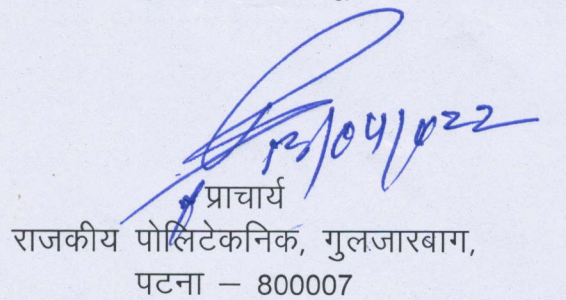 13/04/022
प्राचार्य
राजकीय पोलिटेकनिक, गुलजारबाग,
पटना – 800007